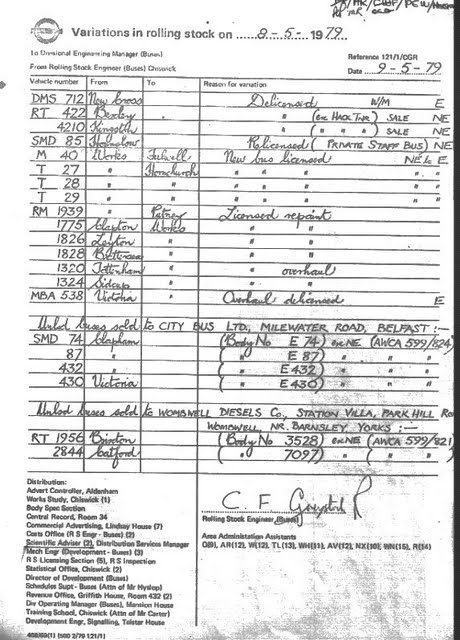 Variations in rolling stock on 8 - 5 - 1979.
To Divisional Engineering Manager (Buses)
Reference 121/1/CGR
From Rolling Stock Engineer (Buses) Chiswick
Date 9-5-79
Vehicle number From To Reason for variation
DMS 712 New Cross Delicensed W/M E
RT 422 Bexley " (ex HACK TWR) SALE NE
4210 Kingston " ( " " " ) SALE NE
SMD 85 Hounslow Relicensed (PRIVATE STAFF BUS) NE
M 40 Works Fulwell New bus licensed NE & E
T 27 " Hornchurch " " "
T 28 " " " " "
T 29 " " " " "
RM 1939 " Putney Licensed repaint
1775 Clapton Works " "
1826 Leyton " " "
1828 Battersea " " "
1320 Tottenham " " overhaul
1324 Sidcup " " "
MBA 538 Victoria " Overhaul delicensed E
Unlcd buses sold to CITY BUS LTD, MILEWATER ROAD, BELFAST :-
SMD 74 Clapham (Body No E 74) ex NE (AWCA 599/824)
87 " ( " E 87) " " "
432 " ( " E 432) " " "
430 Victoria ( " E 430) " " "
Unlcd buses sold to WOMBWELL DIESELS Co., STATION VILLA, PARK HILL
WOMBWELL, NR. BARNSLEY, YORKS :-
RT 1956 Brixton (Body No 3528) ex NE (AWCA 599/821
2844 Catford ( " 7097) " ( "
Distribution:
Advert Controller, Aldenham
Works Study, Chiswick (1)
Body Spec Section
Central Record, Room 34
Commercial Advertising, Lindsay House (7)
Costs Office (R S Engr - Buses) (2)
Scientific Adviser (2), Distribution Services Manager
Mech Engr (Development - Buses) (3)
R S Licensing Section (5), R S Inspection
Statistical Office, Chiswick (2)
Director of Development (Buses)
Schedules Supt - Buses (Attn of Mr Hyslop)
Revenue Office, Griffith House, Room 432 (2)
Div Operating Manager (Buses), Mansion House
Training School, Chiswick (Attn of Mr Carter)
Development Engr, Signalling, Telstar House
Rolling Stock Engineer (Buses)
Area Administration Assistants
Q(9), AR(12), W(12), TL(13), WH(11), AV(12), NX(10), WN(15), R(14)
(500 2/79 121/1)